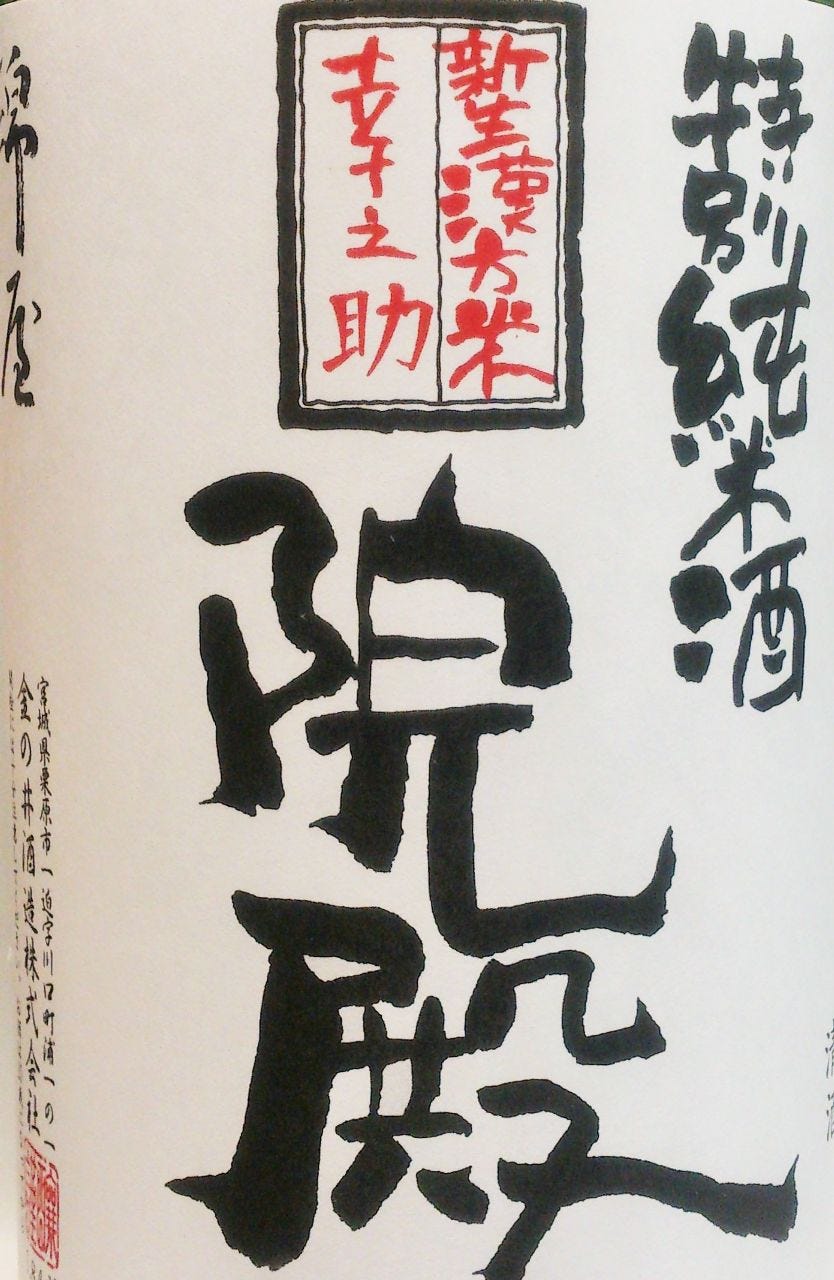 特別純米酒
新生漢方米
幸之助
院殿
綿屋
宮城県栗原市一迫字川口町浦一の一
金の井酒造株式会社
清酒